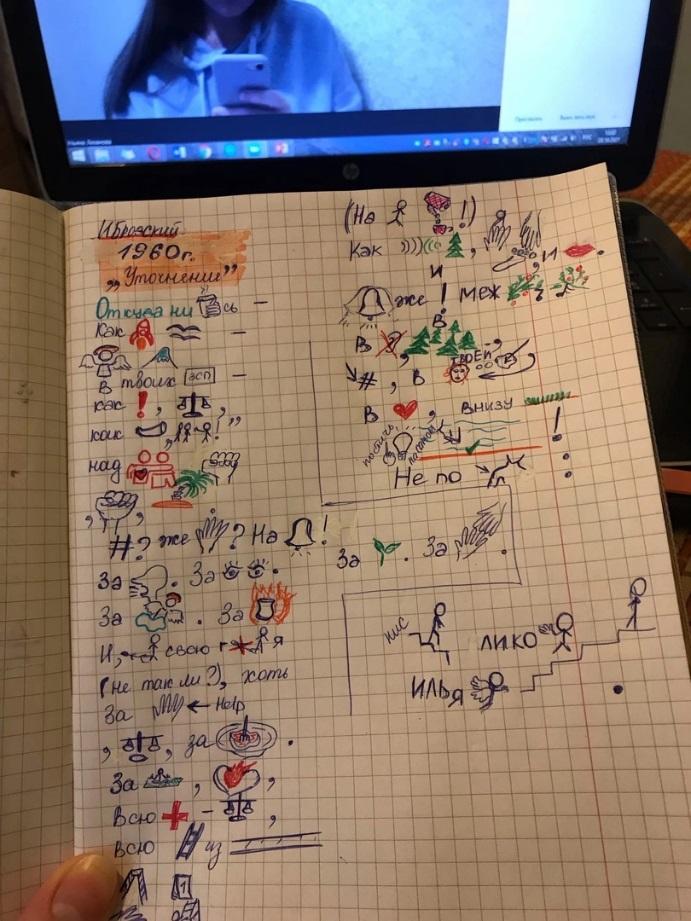 И Бродский
1960г.
„Уточнение"
Откуда ни сь —
Как —
В твоих —
как ! ,
как , !
над
, ,
#? же ? На !
За . За .
За . За
И, свою г я
(не так ли?), хоть
За ← Help
, , за .
За , ,
Всю - ,
Всю из
1
(На !)
Как , , и .
и
же ! меж
в
В ,
твоей
#, в
В , внизу
постичь
!
Не по :
За . За .
нис
лико
илья